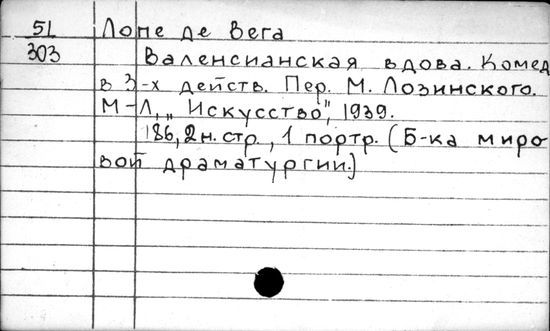 51 Лопе де Вега
303 Валенсианская вдова. Комед
в 3-х действ. Пер. М. Лозинского.
М-Л, „Искусство", 1939.
186, 2 н. стр., 1 портр. (Б-ка миро
вой драматургии.)